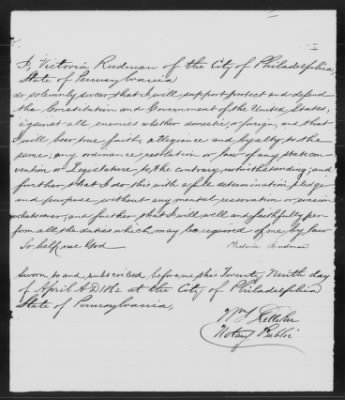 I, Victoria Rudman of the City of Philadelphia,
State of Pennsylvania
do solemnly swear that I will support protect and defend
the Constitution and Government of the United States,
against all enemies whether domestic or foreign, and that
I will bear true faith, allegiance and loyalty to the
same, any ordinance resolution or law of any state con-
vention or Legislature to the contrary notwithstanding; and
further that I do this with a full determination, pledge
and purpose without any mental reservation or evasion
whatsoever; and further that I will well and faithfully per-
form all the duties which may be required of me by law
So help me God
Sworn to and subscribed before me this Twenty Ninth day
of April A.D. at the City of Philadelphia
State of Pennsylvania,
Wm
Notary Public